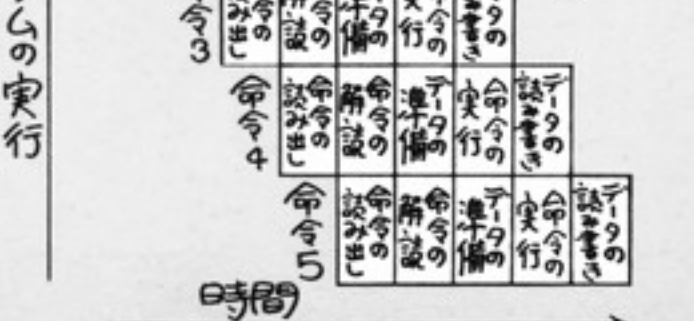 ムの実行
令3
令の
み出し
令の
解読
タの
準備
令の
実行
タの
書き
命令4
命令の
読み出し
命令の
解読
データの
準備
命令の
実行
データの
読み書き
命令5
命令の
読み出し
命令の
解読
データの
準備
命令の
実行
データの
読み書き
時間